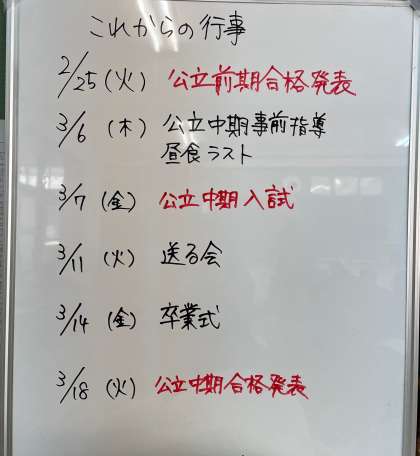 これからの行事
2/25(火) 公立前期合格発表
3/6 (木) 公立中期事前指導
昼食ラスト
3/7 (金) 公立中期入試
3/11 (火) 送る会
3/14 (金) 卒業式
3/18 (火) 公立中期合格発表